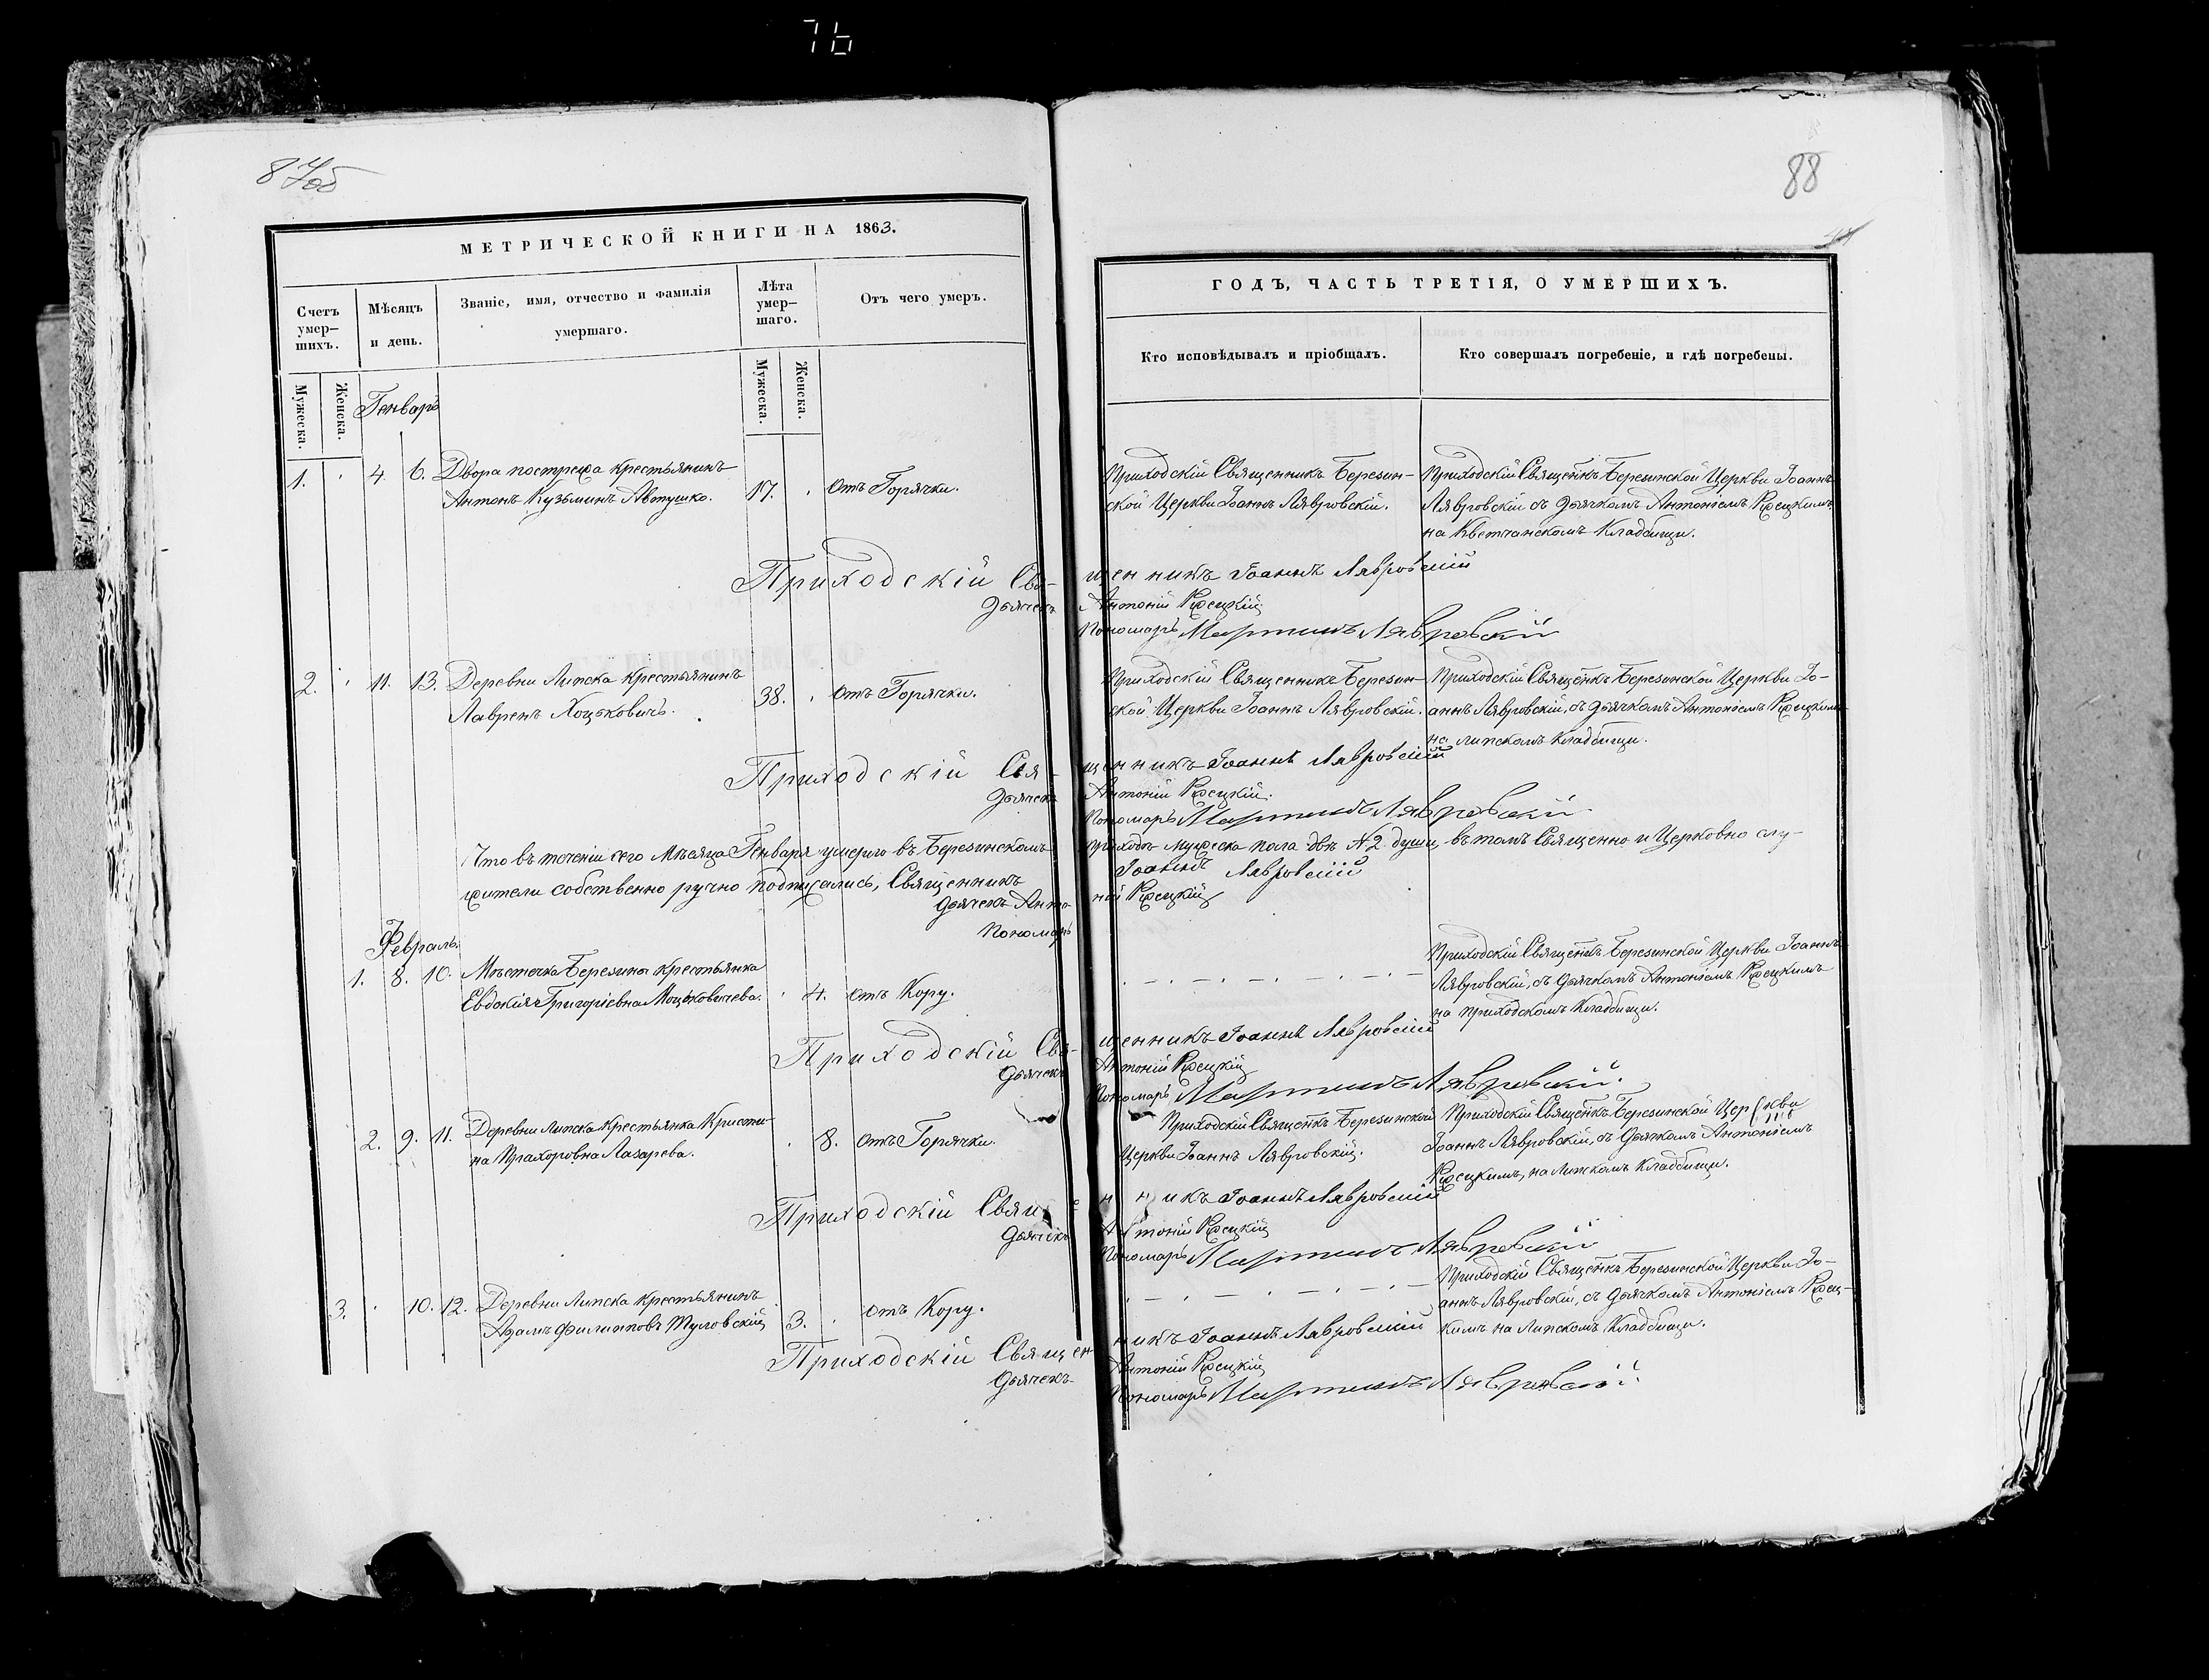 76
87об
МЕТРИЧЕСКОЙ КНИГИ НА 1863.
Счетъ умер-
шихъ.
Мѣсяцъ
и день.
Званіе, имя, отчество и фамилія
умершаго.
Лѣта
умер-
шаго.
Отъ чего умеръ.
Мужеска.
Женска.
Мужеска.
Женска.
Генварь
1. 4. 6. Двора пострежа крестьянинъ 17. отъ Горячки.
Антонъ Кузьминъ Автушко.
Приходскій Свя-
Дьячекъ
2. 11. 13. Деревни Липска крестьянинъ 38. отъ Горячки.
Лавренъ Хоцьковичъ.
Приходскій Свя-
Дьячекъ
Что въ теченіи сего Мѣсяца Генваря умерло въ Березинскомъ
жители собственно ручно подписались, Священникъ
Дьячекъ Анто-
Пономарь
Февраль.
1. 8. 10. Мѣстечка Березина крестьянка 4. отъ Кору.
Евдокія Григоріевна Моцьковичева.
Приходскій Свя-
Дьячекъ
2. 9. 11. Деревни Липска Крестьянка Кристи- 8. отъ Горячки.
на Прахоровна Лазарева.
Приходскій Свящ
Дьячекъ
3. 10. 12. Деревни Липска крестьянинъ 3. отъ Кору.
Адамъ Филиповъ Туловскій
Приходскій Священ
Дьячекъ
88
ГОДЪ, ЧАСТЬ ТРЕТІЯ, О УМЕРШИХЪ.
Кто исповѣдывалъ и пріобщалъ.
Кто совершалъ погребеніе, и гдѣ погребены.
Приходскій Священникъ Березин-
ской Церкви Іоаннъ Лявровскій.
Приходскій Священкъ Березинской Церкви Іоаннъ
Лявровскій съ дьячкомъ Антоніемъ
на Кветчанскомъ Кладбищи.
щенникъ Іоаннъ Лявровскій
Антоній
Пономарь Мартинъ Лявровскій
Приходскій Священникъ Березин-
ской Церкви Іоаннъ Лявровскій.
Приходскій Священкъ Березинской Церкви Іо-
аннъ Лявровскій, съ дьячкомъ Антоніемъ
на Липскомъ Кладбищи.
щенникъ Іоаннъ Лявровскій
Антоній
Пономарь Мартинъ Лявровскій
приходѣ мужеска пола двѣ №2 души, въ томъ Священно и Церковно слу-
Іоаннъ Лявровскій
ній
Приходскій Священкъ Березинской Церкви Іоаннъ
Лявровскій, съ дьячкомъ Антоніемъ
на приходскомъ Кладбищи.
щенникъ Іоаннъ Лявровскій
Антоній
Пономарь Мартинъ Лявровскій.
Приходскій Священкъ Березинской
Церкви Іоаннъ Лявровскій.
Приходскій Священкъ Березинской Церкви
Іоаннъ Лявровскій, съ Дьячкомъ Антоніемъ
на Липскомъ Кладбищи.
никъ Іоаннъ Лявровскій
Антоній
Пономарь Мартинъ Лявровскій
Приходскій Священкъ Березинской Церкви Іо-
аннъ Лявровскій, съ Дьячкомъ Антоніемъ
кимъ на Липскомъ Кладбищи.
никъ Іоаннъ Лявровскій
Антоній
Пономарь Мартинъ Лявровскій